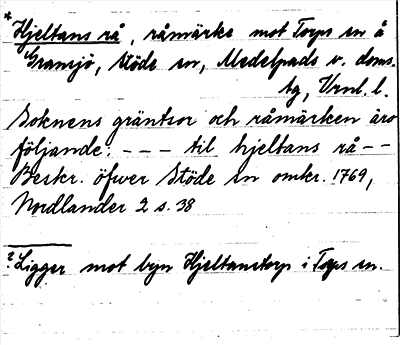 *Hjeltans rå, råmärke mot Torps sn å
Gransjö, Stöde sn, Medelpads v. doms.
tg, Vrnl. l.
Soknens gräntsor och råmärken äro
följande: - - - til hjeltans rå - -
Beskr. öfwer Stöde sn omkr. 1769,
Nordlander 2 s. 38
? Ligger mot byn Hjeltanstorp i Torps sn.